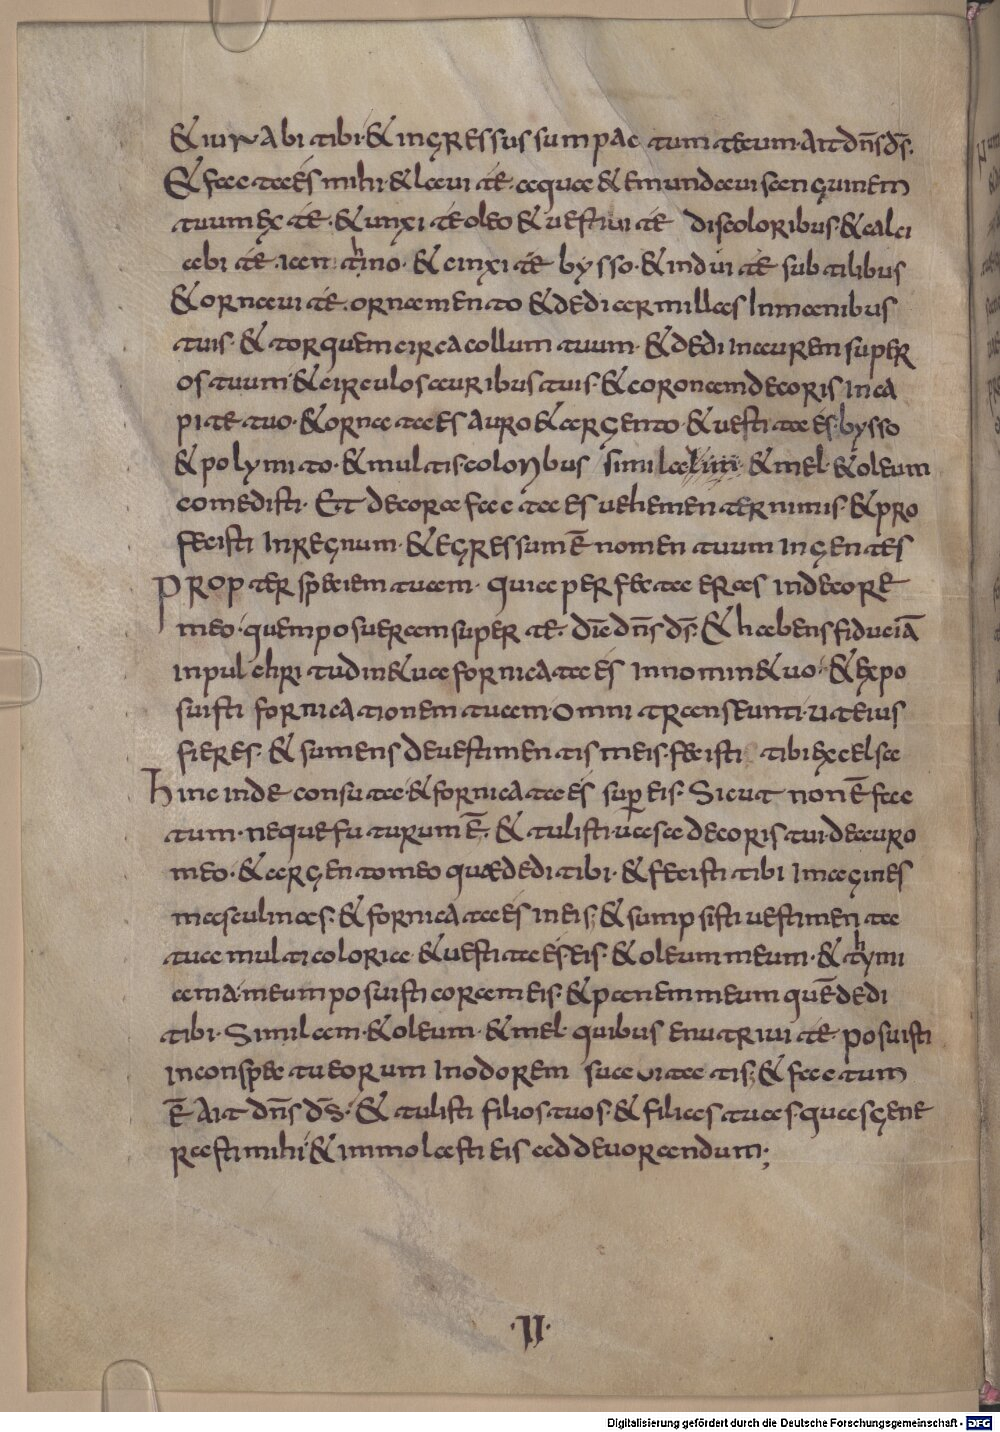 & iurabi tibi· & ingressus sum pactum tecum· ait dn̄s ds̄·
& facta es mihi· & laui te aqua & emundaui sanguinem
tuum ex te· & unxi te oleo & uestiui te discoloribus· & calci
abi te iantħino· & cinxi te bysso· & indui te subtilibus
& ornaui te ornamento & dedi armillas In manibus
tuis· & torquem circa collum tuum· & dedi In aurem super
os tuum· & circulos auribus tuis· & coronam decoris In ca
pite tuo· & ornata es auro & argento· & uestita es bysso
& polymito· & multis coloribus simila & mel· & oleum
comedisti· Et decora facta es uehementer nimis· & pro
fecisti In regnum· & egressum ē nomen tuum In gentes
propter speciem tuam· quia perfecta eras In decore
meo· quem posueram super te· dīc dn̄s ds̄· & habens fiduciā
In pulchritudine tua fornicata es In nomine tuo· & expo
suisti fornicationem tuam omni transeunti· ut eius
fieres· & sumens de uestimentis meis· fecisti tibi excelsa
hinc inde consuta· & fornicata es super eis· Sicut non ē fac
tum· neque futurum ē· & tulisti uasa decoris tui· de auro
meo· & argento meo quæ dedi tibi· & fecisti tibi Imagines
masculinas· & fornicata es In eis· & sumpsisti uestimenta
tua multicoloria & uestita es eis· & oleum meum· & tħymi
ama meum posuisti coram eis· & panem meum quē dedi
tibi· Similam· & oleum· & mel· quibus enutriui te posuisti
In conspectu eorum In odorem suauitatis· & factum
ē Ait dn̄s ds̄· & tulisti filios tuos· & filias tuas· quas gene
rasti mihi· & immolasti eis ad deuorandum;
·II·
Digitalisierung gefördert durch die Deutsche Forschungsgemeinschaft - DFG